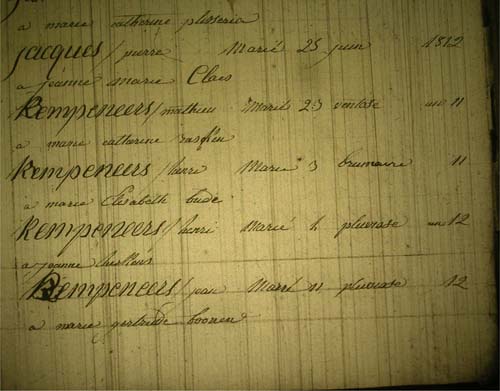 a marie catherine plisseria
Jacques / pierre Marié 25 juin 1812
a jeanne marie Claes
Kempeneers / mathieu Marié 23 ventose an 11
a marie catherine
Kempeneers / henri Marié 3 brumaire 11
a marie Elisabeth bude
Kempeneers / henri Marié 4 pluviose an 12
a jeanne
Kempeneers / jean Marié 11 pluviose 12
a marie gertrude boonen